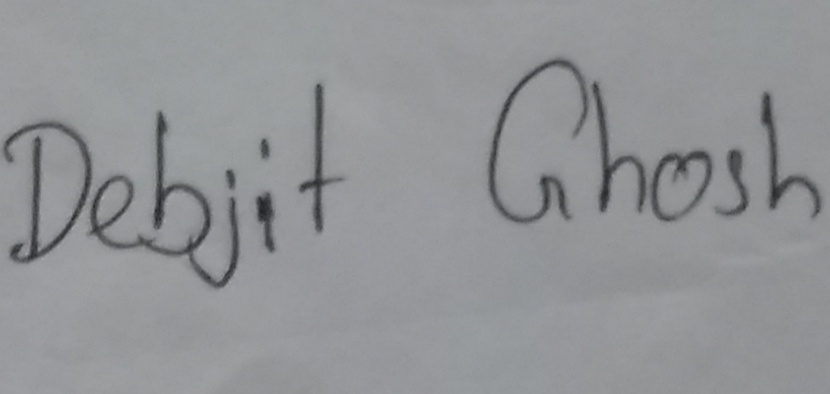 Debjit Ghosh